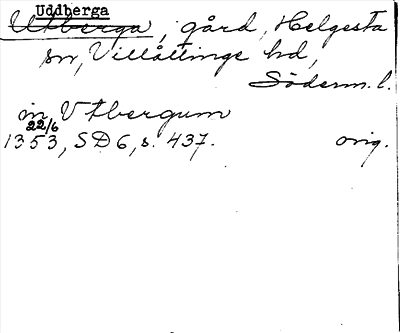 Uddberga
Utberga, gård, Helgesta
sn, Villåttinge hd,
Söderm. l.
in Vtbergum
22/6
1353, SD 6, s. 437. orig.